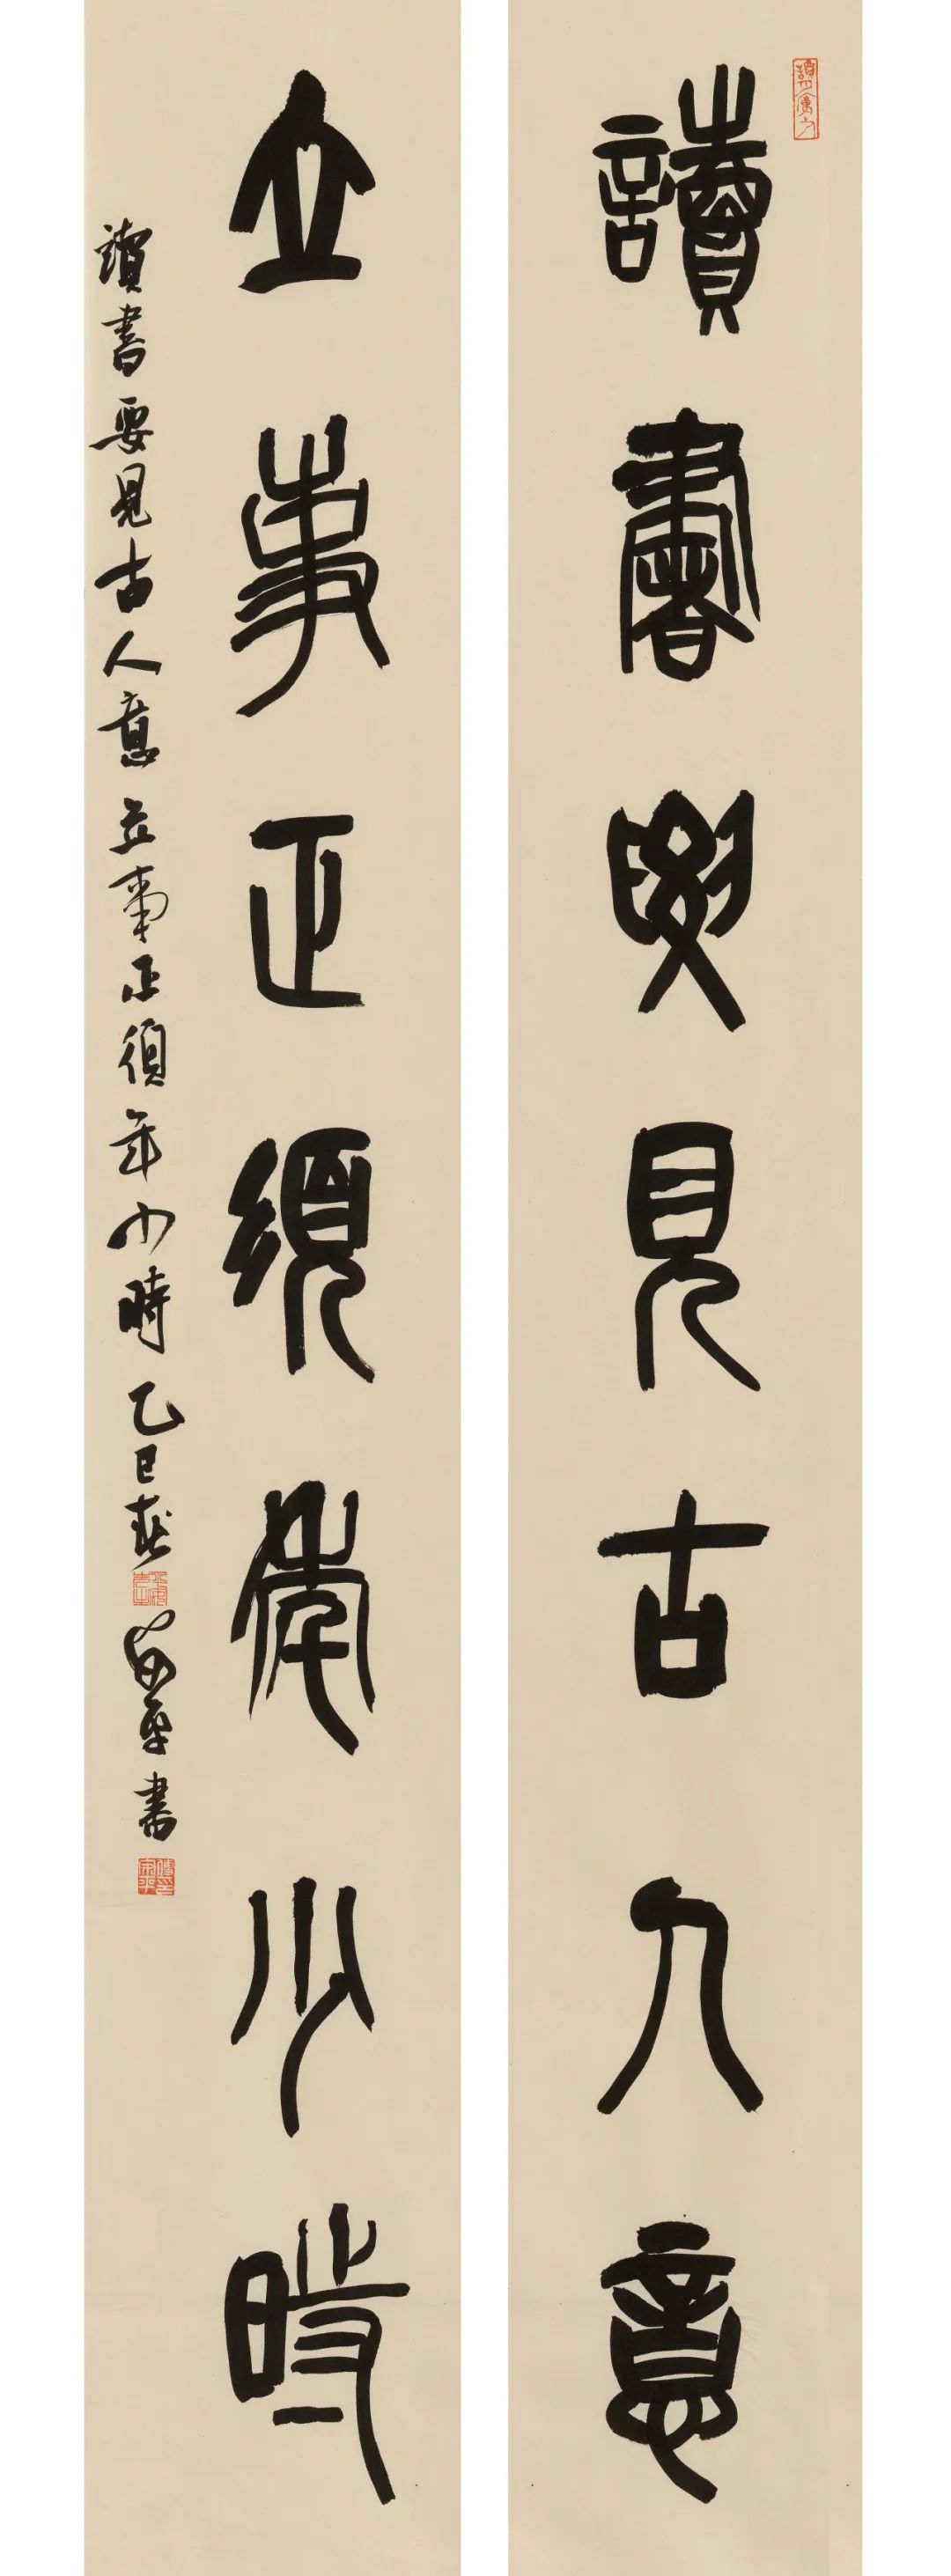 讀書要見古人意
立事正須年少時
讀書要見古人意立事正須年少時乙巳春